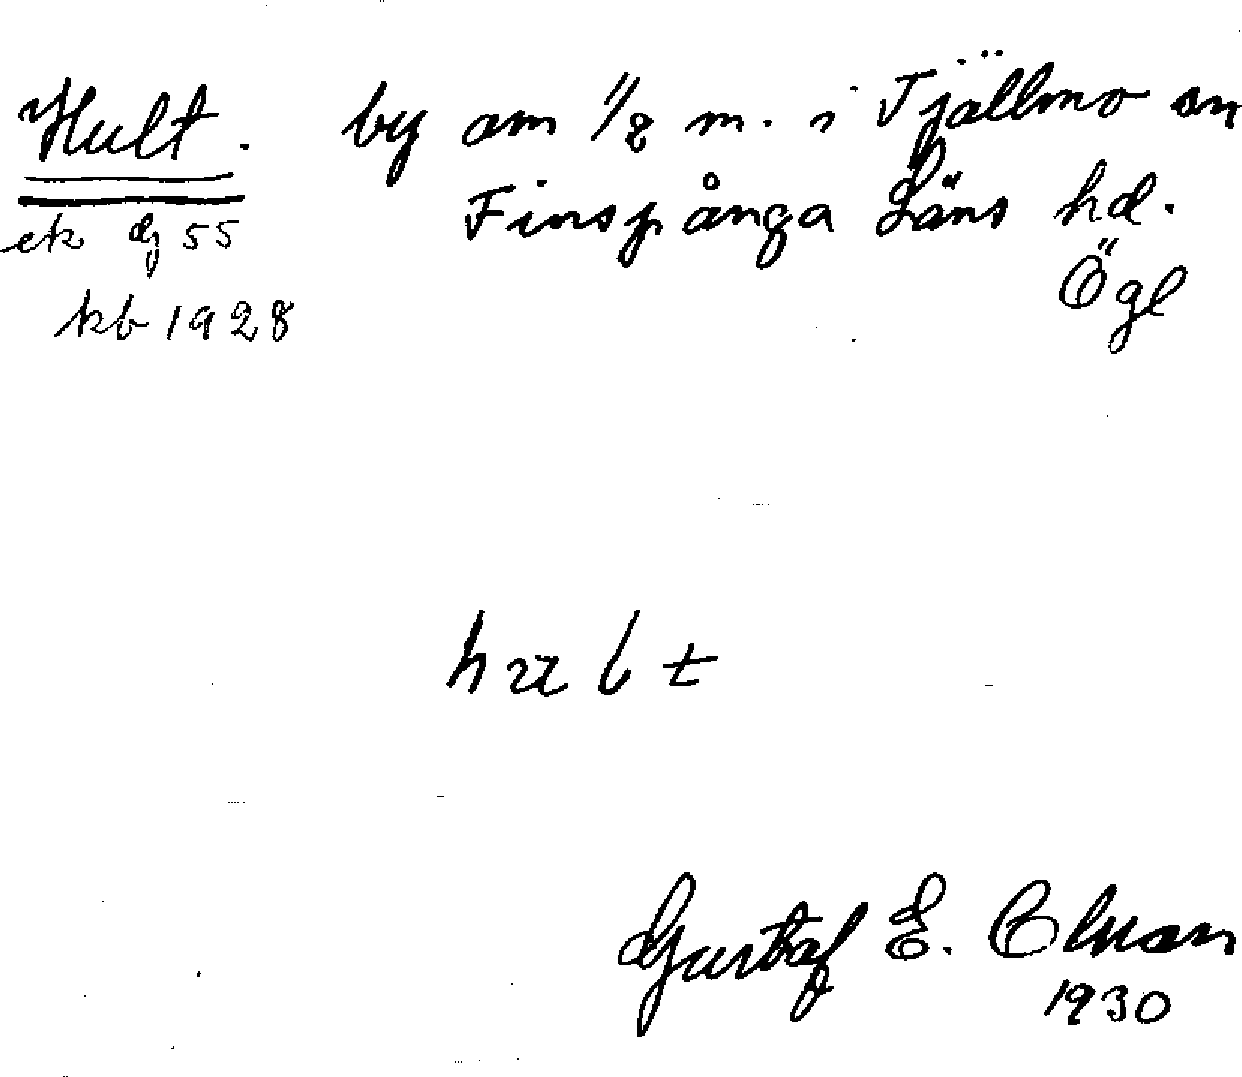 Hult. by om 1/8 m. i Tjällmo sn
Finspånga Läns hd.
Ögl
ek dj 55
kb 1928
Gustaf E.
1930